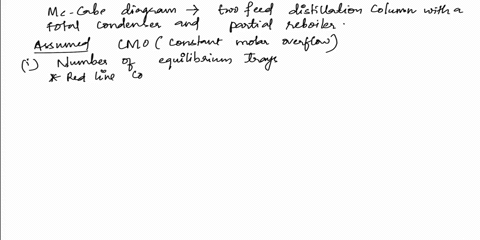 Mc-Cabe diagram → two feed distillation column with a
total condenser and partial reboiler.
Assumed CMO (constant molar overflow)
(i) Number of equilibrium trays
* Red line Co